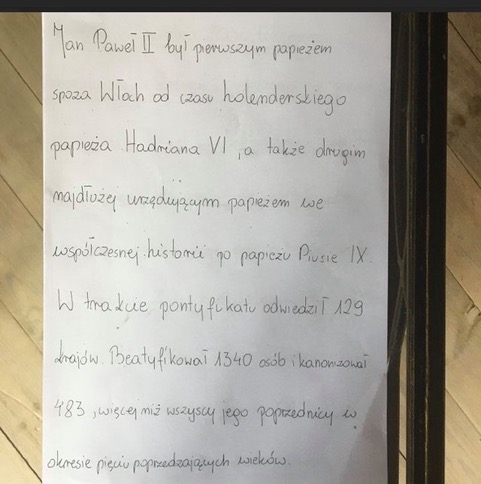 Jan Paweł II był pierwszym papieżem
spoza Włoch od czasu holenderskiego
papieża Hadriana VI, a także drugim
najdłużej urzędującym papieżem we
współczesnej historii po papieżu Piusie IX.
W trakcie pontyfikatu odwiedził 129
krajów. Beatyfikował 1340 osób i kanonizował
483, więcej niż wszyscy jego poprzednicy w
okresie pięciu poprzedzających wieków.